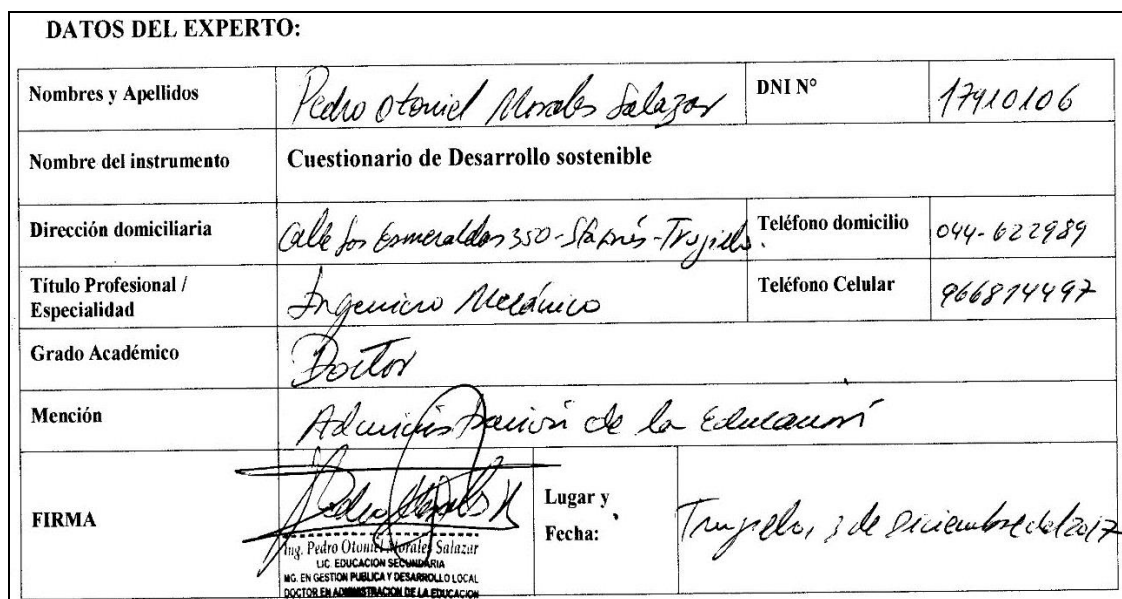 DATOS DEL EXPERTO:
Nombres y Apellidos Pedro Otoniel Morales Salazar DNI N° 17910106
Nombre del instrumento Cuestionario de Desarrollo sostenible
Dirección domiciliaria Calle Los Esmeraldas 350-Sta Inés-Trujillo. Teléfono domicilio 044-622989
Título Profesional / Especialidad Ingeniero Mecánico Teléfono Celular 966874497
Grado Académico Doctor
Mención Administración de la Educación
FIRMA Pedro Morales Lugar y Fecha: Trujillo, 3 de Diciembre del 2017
Ing. Pedro Otoniel Morales Salazar
LIC. EDUCACION SECUNDARIA
MG. EN GESTION PUBLICA Y DESARROLLO LOCAL
DOCTOR EN ADMINISTRACION DE LA EDUCACION